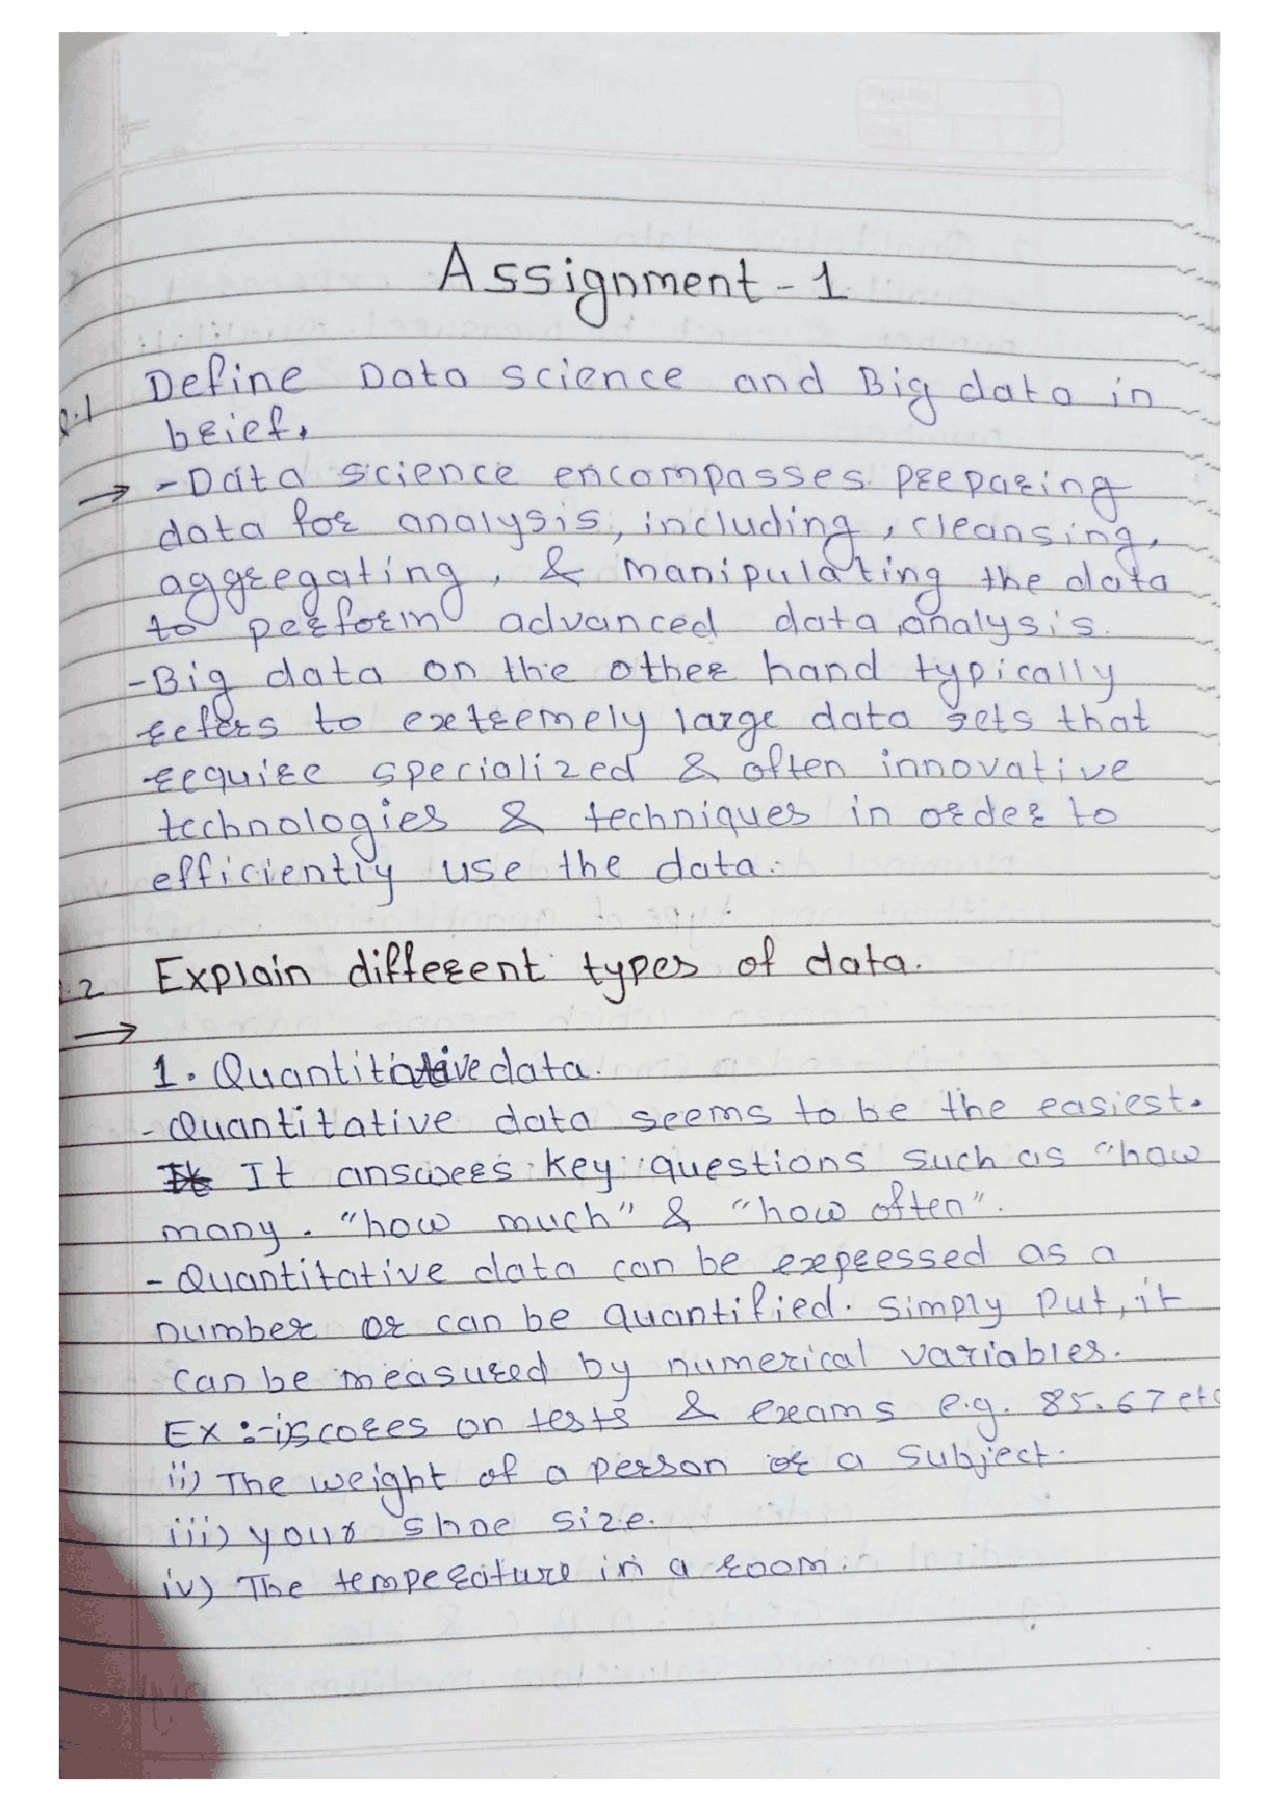 Assignment - 1
Q.1 Define Data science and Big data in
brief.
→ - Data science encompasses preparing
data for analysis, including, cleansing,
aggregating, & manipulating the data
to perform advanced data analysis.
- Big data on the other hand typically
refers to exetremely large data sets that
require specialized & often innovative
technologies & techniques in order to
efficiently use the data.
.2 Explain different types of data.
→
1. Quantitative data.
- Quantitative data seems to be the easiest.
It answers key questions such as "how
many. "how much" & "how often".
- Quantitative data can be expressed as a
number or can be quantified. Simply put, it
can be measured by numerical variables.
Ex :- i) scores on tests & exams e.g. 85.67 etc
ii) The weight of a person or a subject.
iii) your shoe size.
iv) The temperature in a room.